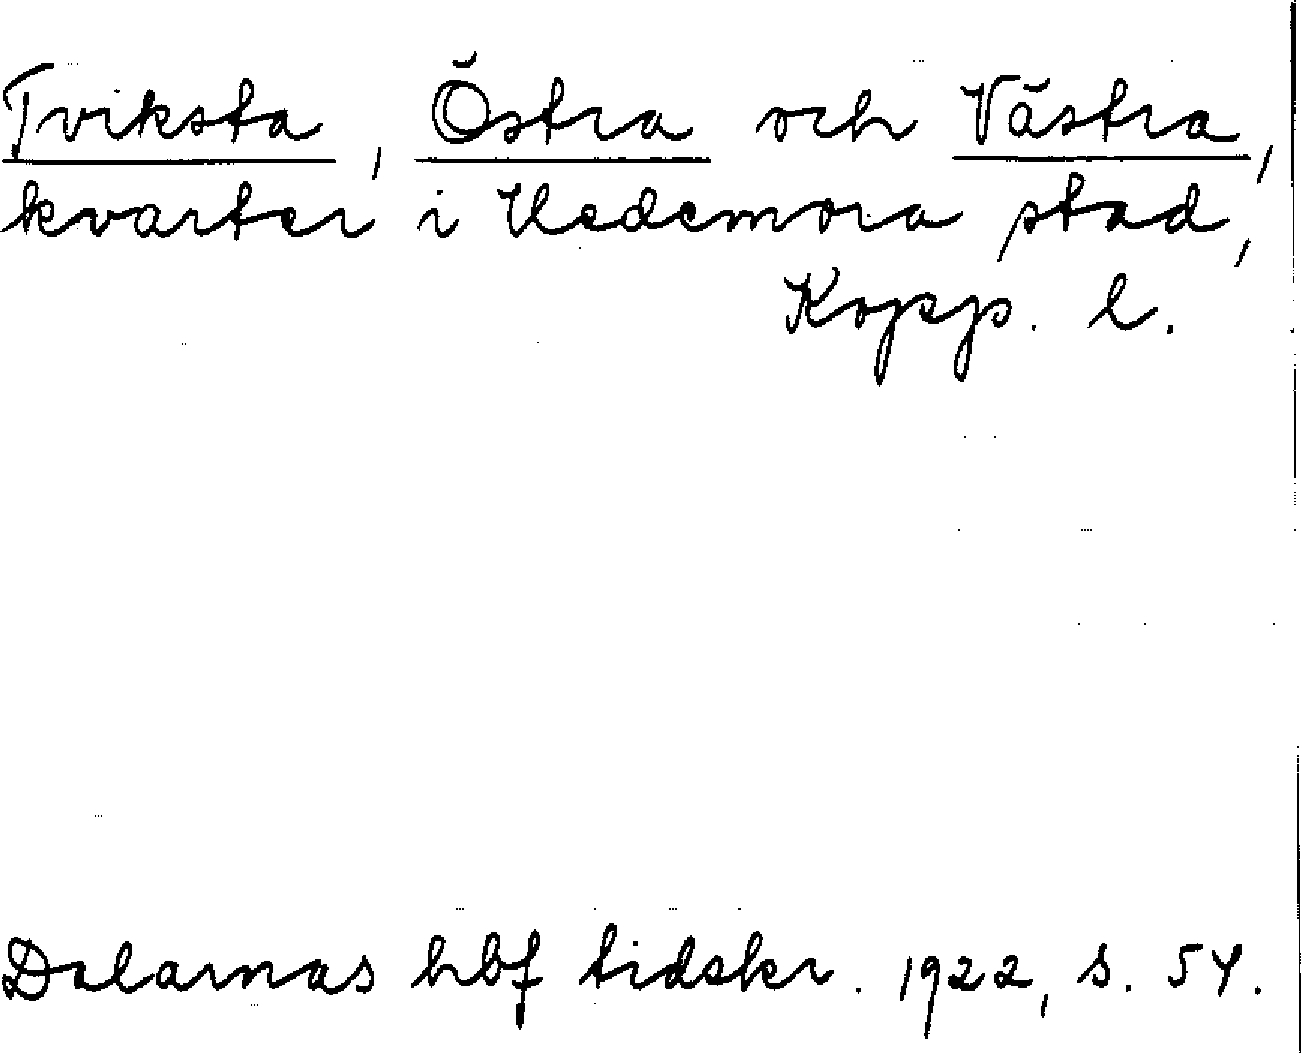 Tviksta, Östra och Västra,
kvarter i Hedemora stad,
Kopp. l.
Dalarnas hbf tidskr. 1922, s. 54.